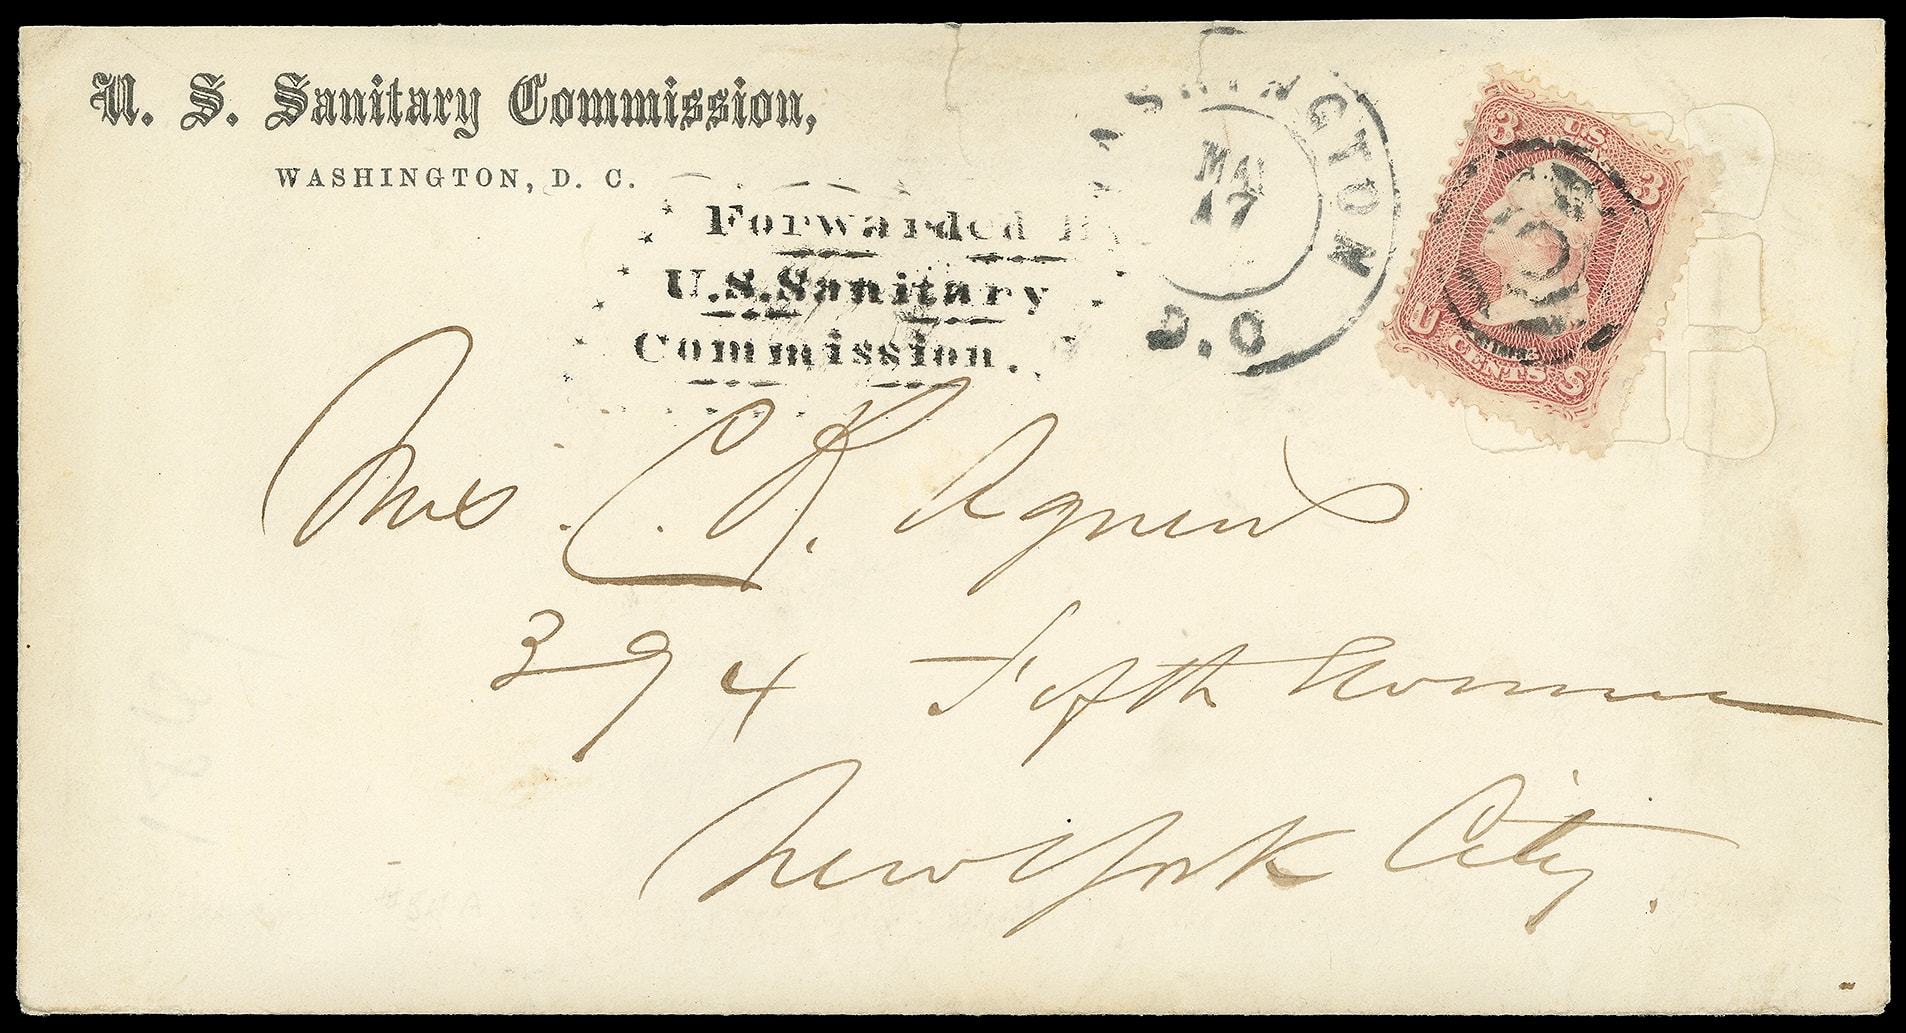 U. S. Sanitary Commission,
WASHINGTON, D. C.
Forwarded By
U.S. Sanitary
Commission.
WASHINGTON
D.C
17
3 U.S. 3
U CENTS S
Mrs. C. R. Agnew
394 Fifth Avenue
New York City.